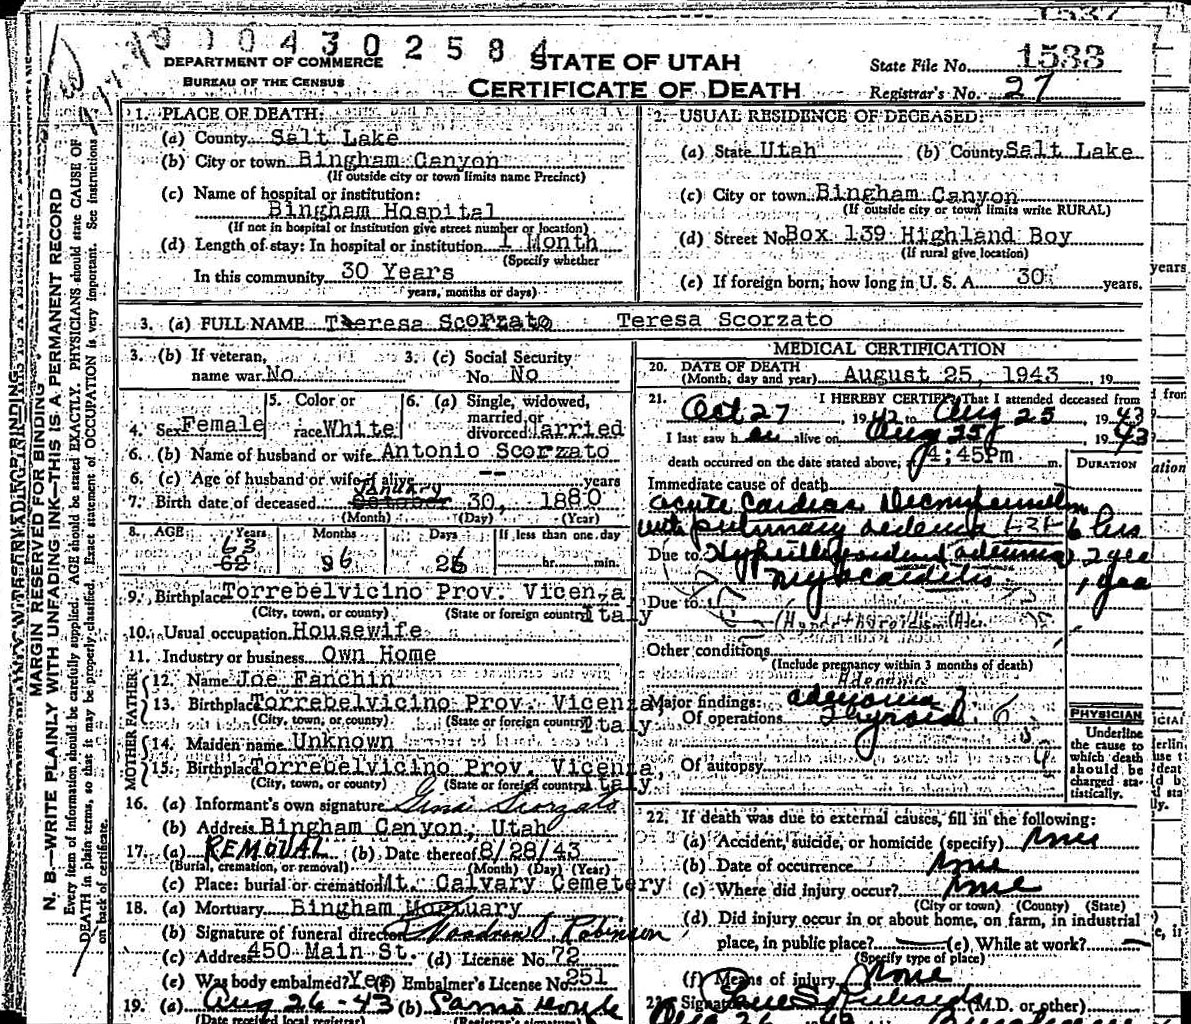 0 1 0 4 3 0 2 5 8 4
DEPARTMENT OF COMMERCE
BUREAU OF THE CENSUS
STATE OF UTAH
CERTIFICATE OF DEATH
State File No. 1533
Registrar's No. 27
MARGIN RESERVED FOR BINDING
N. B—WRITE PLAINLY WITH UNFADING INK—THIS IS A PERMANENT RECORD
Every item of information should be carefully supplied. AGE should be stated EXACTLY. PHYSICIANS should state CAUSE OF
DEATH in plain terms, so that it may be properly classified. Exact statement of OCCUPATION is very important. See instructions
on back of certificate.
1. PLACE OF DEATH:
(a) County Salt Lake
(b) City or town Bingham Canyon
(If outside city or town limits name Precinct)
(c) Name of hospital or institution:
Bingham Hospital
(If not in hospital or institution give street number or location)
(d) Length of stay: In hospital or institution 1 Month
(Specify whether
In this community 30 Years
years, months or days)
2. USUAL RESIDENCE OF DECEASED:
(a) State Utah (b) County Salt Lake
(c) City or town Bingham Canyon
(If outside city or town limits write RURAL)
(d) Street No. Box 139 Highland Boy
(If rural give location)
(e) If foreign born, how long in U. S. A. 30 years.
3. (a) FULL NAME Theresa Scorzato Teresa Scorzato
3. (b) If veteran, name war No 3. (c) Social Security No. No
4. Sex Female 5. Color or race White 6. (a) Single, widowed, married or divorced Married
6. (b) Name of husband or wife Antonio Scorzato
6. (c) Age of husband or wife if alive -- years
January
7. Birth date of deceased October 30, 1880
(Month) (Day) (Year)
8. AGE Years Months Days If less than one day
63
62 6 26 hr. min.
9. Birthplace Torrebelvicino Prov. Vicenza
(City, town, or county) (State or foreign country) Italy
10. Usual occupation Housewife
11. Industry or business Own Home
FATHER
12. Name Joe Fanchin
13. Birthplace Torrebelvicino Prov. Vicenza
(City, town, or county) (State or foreign country) Italy
MOTHER
14. Maiden name Unknown
15. Birthplace Torrebelvicino Prov. Vicenza,
(City, town, or county) (State or foreign country) Italy
16. (a) Informant's own signature Gina Scorzato
(b) Address Bingham Canyon, Utah
17. (a) REMOVAL (b) Date thereof 8/28/43
(Burial, cremation, or removal) (Month) (Day) (Year)
(c) Place: burial or cremation Mt. Calvary Cemetery
18. (a) Mortuary Bingham Mortuary
(b) Signature of funeral director Woodrow Robinson
(c) Address 450 Main St. (d) License No. 72
(e) Was body embalmed? Yes Embalmer's License No. 251
19. (a) Aug 26 - 43 (b)
(Date received local registrar) (Registrar's signature)
MEDICAL CERTIFICATION
20. DATE OF DEATH
(Month, day and year) August 25, 1943 , 19
21. I HEREBY CERTIFY, That I attended deceased from
Oct 27 1942 to Aug 25 1943
I last saw her alive on Aug 25 1943
death occurred on the date stated above, 4:45Pm m.
DURATION
Immediate cause of death
acute Cardiac Decompensation
with pulmonary oedema 6 hrs
Due to 2 yrs
myocarditis 1 year
Due to
Other conditions
(Include pregnancy within 3 months of death)
Adenoma
Major findings: adenoma
Of operations Thyroid
Of autopsy
PHYSICIAN
Underline
the cause to
which death
should be
charged sta-
tistically.
22. If death was due to external causes, fill in the following:
(a) Accident, suicide, or homicide (specify) none
(b) Date of occurrence none
(c) Where did injury occur? none
(City or town) (County) (State)
(d) Did injury occur in or about home, on farm, in industrial
place, in public place? — (e) While at work? —
(Specify type of place)
(f) Means of injury none
23. Signature Paul S. Richards (M.D. or other)